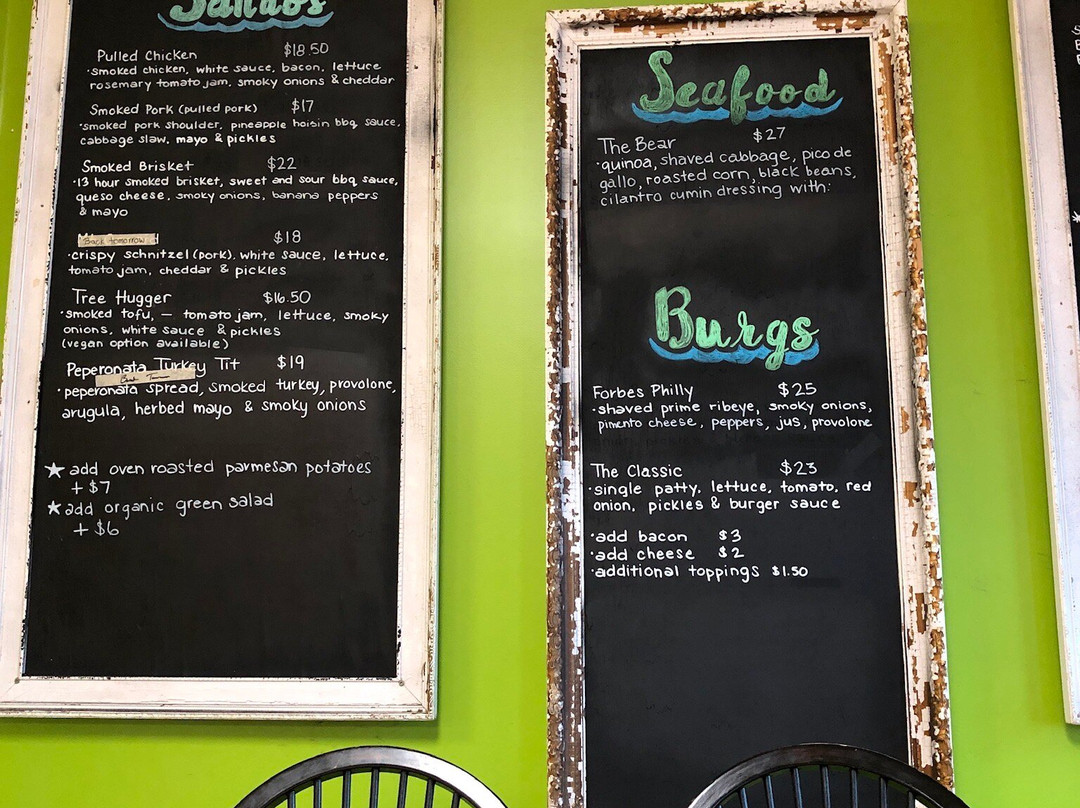 Sandos
Pulled Chicken $18.50
·smoked chicken, white sauce, bacon, lettuce
rosemary tomato jam, smoky onions & cheddar
Smoked Pork (pulled pork) $17
·smoked pork shoulder, pineapple hoisin bbq sauce,
cabbage slaw, mayo & pickles
Smoked Brisket $22
·13 hour smoked brisket, sweet and sour bbq sauce,
queso cheese, smoky onions, banana peppers
& mayo
Back tomorrow $18
·crispy schnitzel (pork), white sauce, lettuce,
tomato jam, cheddar & pickles
Tree Hugger $16.50
·smoked tofu, — tomato jam, lettuce, smoky
onions, white sauce & pickles
(vegan option available)
Peperonata Turkey Tit $19
·peperonata spread, smoked turkey, provolone,
arugula, herbed mayo & smoky onions
★ add oven roasted parmesan potatoes
+ $7
★ add organic green salad
+ $6
Seafood
The Bear $27
·quinoa, shaved cabbage, pico de
gallo, roasted corn, black beans,
cilantro cumin dressing with:
Burgs
Forbes Philly $25
·shaved prime ribeye, smoky onions,
pimento cheese, peppers, jus, provolone
The Classic $23
·single patty, lettuce, tomato, red
onion, pickles & burger sauce
·add bacon $3
·add cheese $2
·additional toppings $1.50